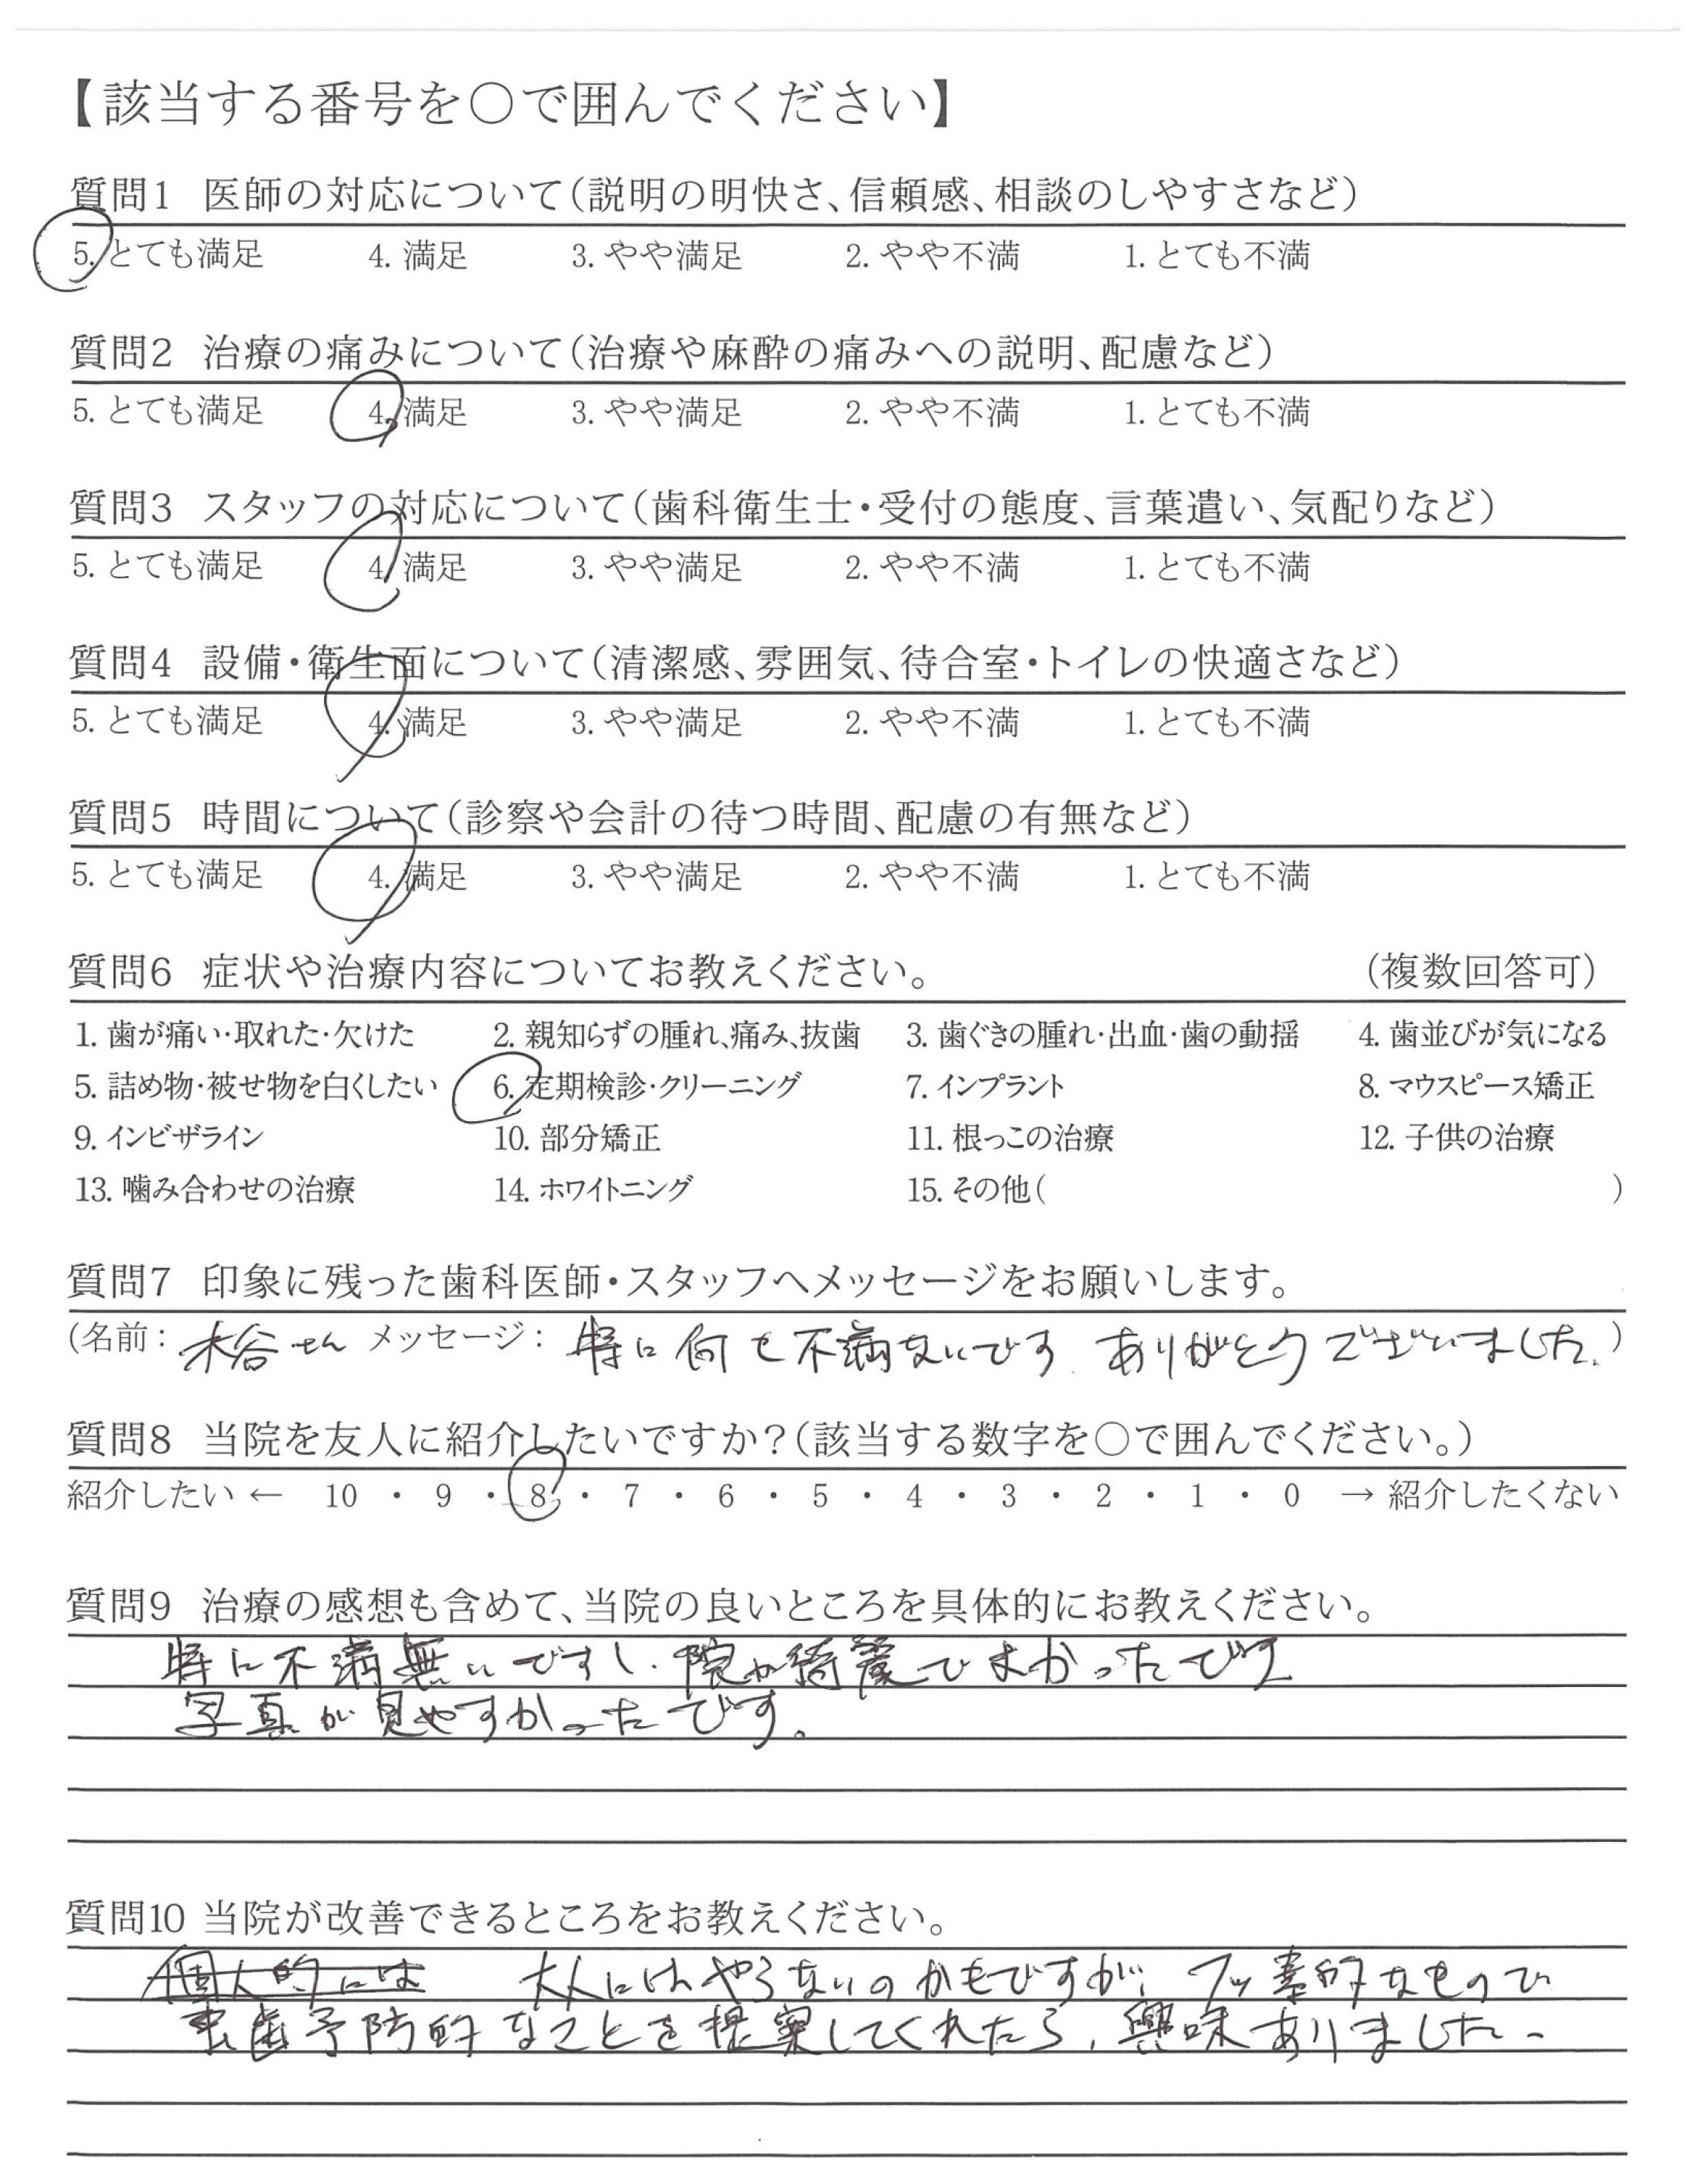 【該当する番号を○で囲んでください】
質問1 医師の対応について(説明の明快さ、信頼感、相談のしやすさなど)
5. とても満足 4. 満足 3. やや満足 2. やや不満 1. とても不満
質問2 治療の痛みについて(治療や麻酔の痛みへの説明、配慮など)
5. とても満足 4. 満足 3. やや満足 2. やや不満 1. とても不満
質問3 スタッフの対応について(歯科衛生士・受付の態度、言葉遣い、気配りなど)
5. とても満足 4. 満足 3. やや満足 2. やや不満 1. とても不満
質問4 設備・衛生面について(清潔感、雰囲気、待合室・トイレの快適さなど)
5. とても満足 4. 満足 3. やや満足 2. やや不満 1. とても不満
質問5 時間について(診察や会計の待つ時間、配慮の有無など)
5. とても満足 4. 満足 3. やや満足 2. やや不満 1. とても不満
質問6 症状や治療内容についてお教えください。 (複数回答可)
1. 歯が痛い・取れた・欠けた 2. 親知らずの腫れ、痛み、抜歯 3. 歯ぐきの腫れ・出血・歯の動揺 4. 歯並びが気になる
5. 詰め物・被せ物を白くしたい 6. 定期検診・クリーニング 7. インプラント 8. マウスピース矯正
9. インビザライン 10. 部分矯正 11. 根っこの治療 12. 子供の治療
13. 噛み合わせの治療 14. ホワイトニング 15. その他( )
質問7 印象に残った歯科医師・スタッフへメッセージをお願いします。
(名前: 木谷せん メッセージ: 特に何も不満ないです ありがとうございました。)
質問8 当院を友人に紹介したいですか?(該当する数字を○で囲んでください。)
紹介したい ← 10 ・ 9 ・ 8 ・ 7 ・ 6 ・ 5 ・ 4 ・ 3 ・ 2 ・ 1 ・ 0 → 紹介したくない
質問9 治療の感想も含めて、当院の良いところを具体的にお教えください。
特に不満無いですし、院が綺麗でよかったです
写真が見やすかったです。
質問10 当院が改善できるところをお教えください。
個人的には 大人にはやらないのかもですが、フッ素的なもので
虫歯予防的なことを提案してくれたら、興味ありました。